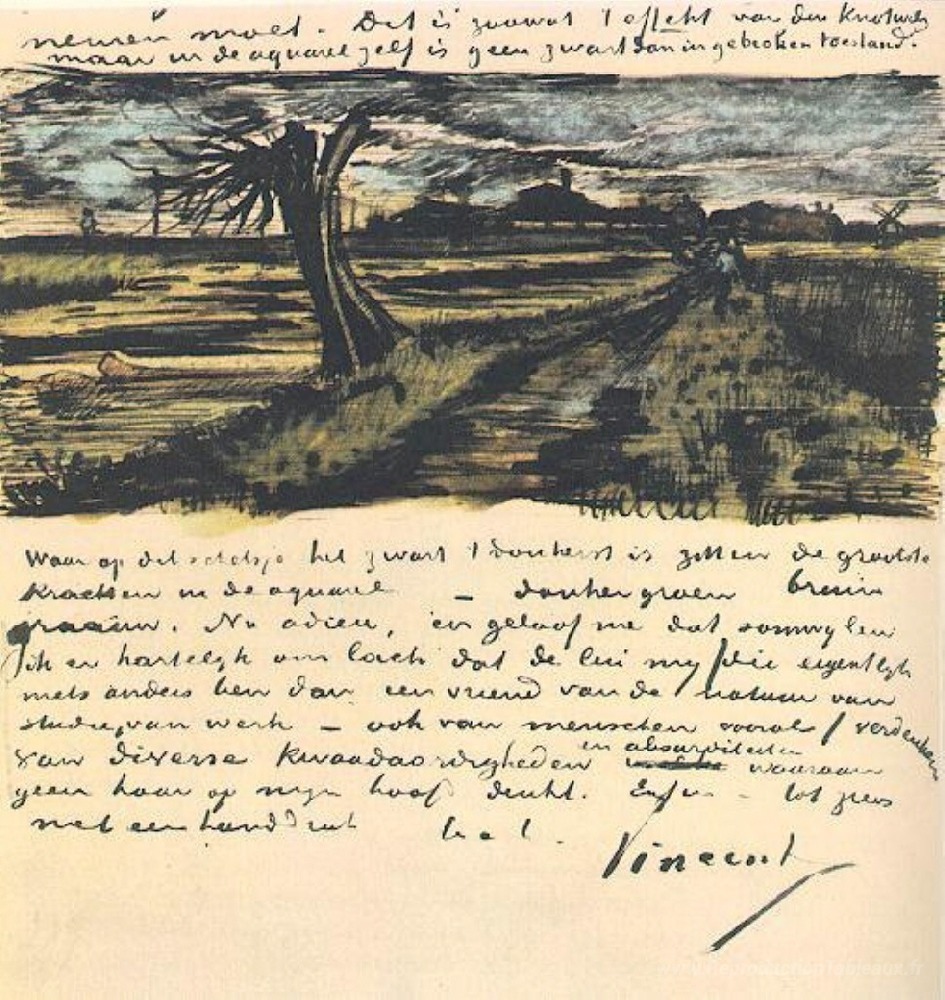 nemen moet. Dit is zoowat 't effekt van den knotwilg
maar in de aquarel zelf is geen zwart dan in gebroken toestand.
Waar op dit schetsje het zwart 't donkerst is zitten de grootste
krachten in de aquarel — donkergroen bruin
graauw. Nu adieu, en geloof me dat somwijlen
ik er hartelijk om lach dat de lui mij /die eigentlijk
niets anders ben dan een vriend van de natuur van
studie, van werk — ook van menschen vooral/ verdenken
van diverse kwaadaardigheden en absurditeiten waaraan
geen haar op mijn hoofd denkt. Enfin — tot ziens
met een handdruk t. à t.
Vincent